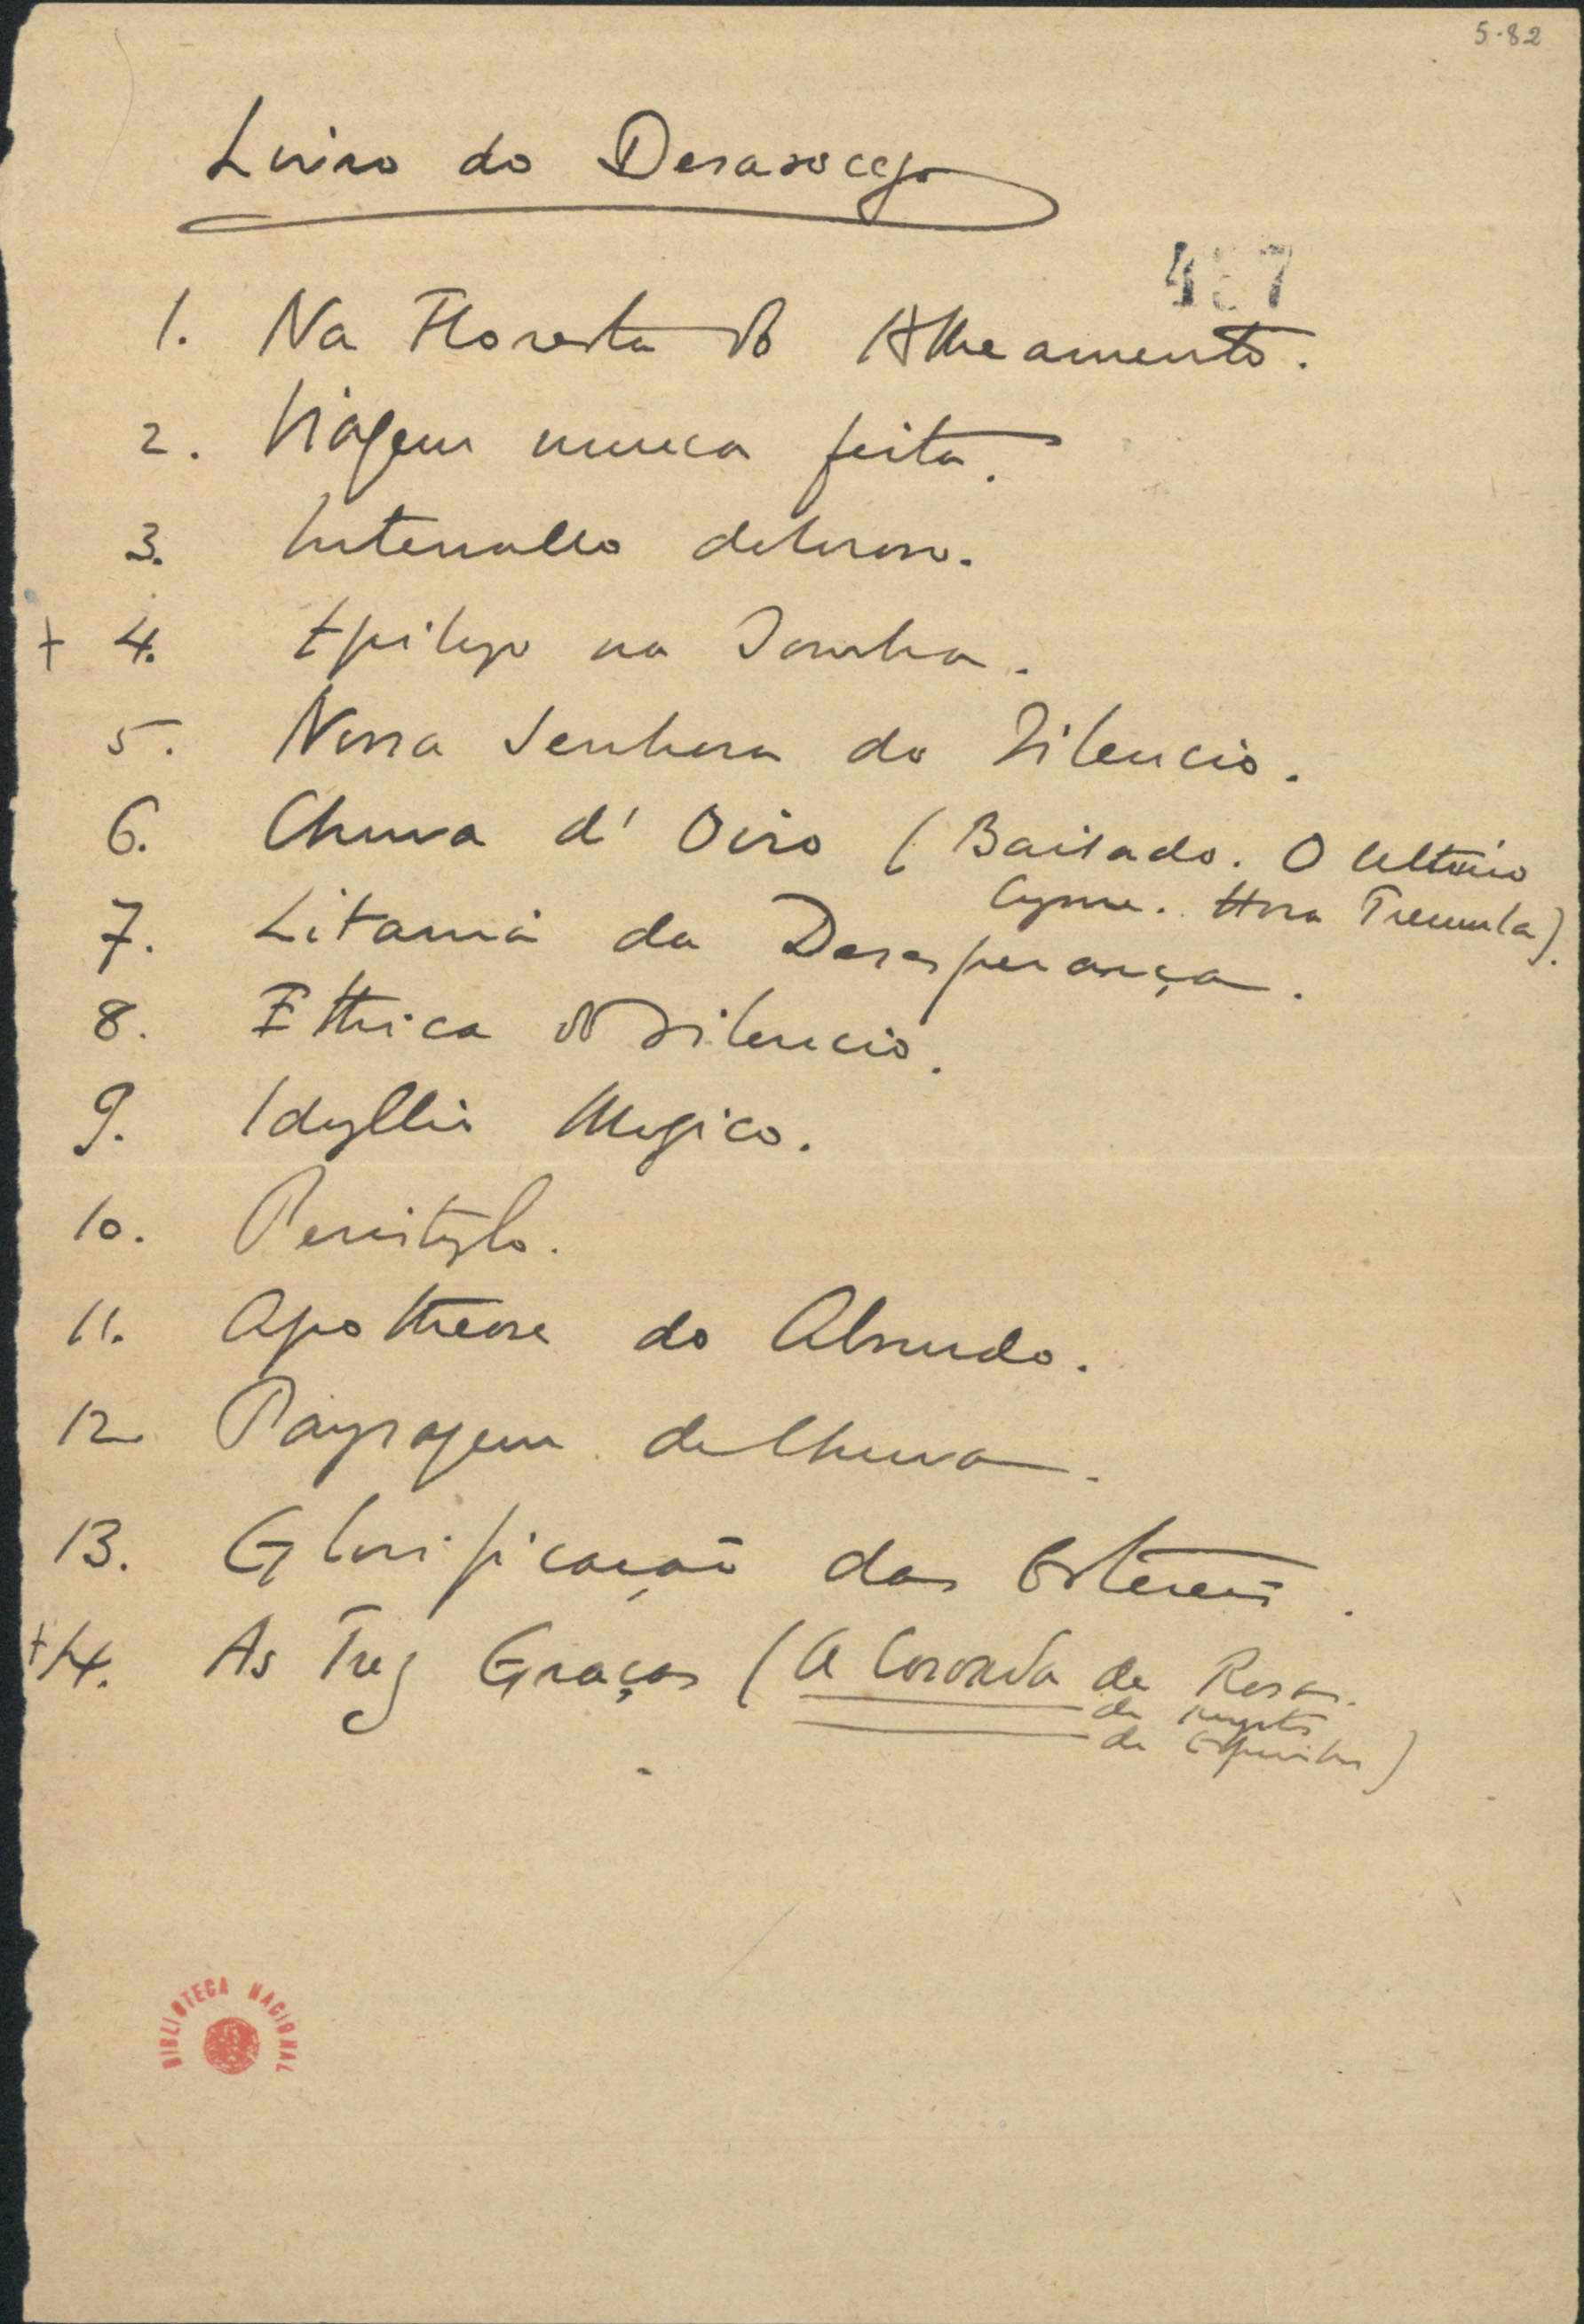 5-82
Livro do Desasocego
4 7
1. Na Floresta do Alheamento.
2. Viagem nunca feita.
3. Intervallo doloroso.
+ 4. Epilogo na Sombra.
5. Nossa Senhora do Silencio.
6. Chuva d'Oiro (Bailado. O ultimo
Cysne. Hora Tremula).
7. Litania da Desesperança.
8. Ethica do Silencio.
9. Idyllio Magico.
10. Peristylo.
11. Apotheose do Absurdo.
12 Paysagem de Chuva.
13. Glorificação das Estereis.
+ 14. As Trez Graças (A Coroada de Rosas.
de Myrtos
de Espinhos)
BIBLIOTECA NACIONAL